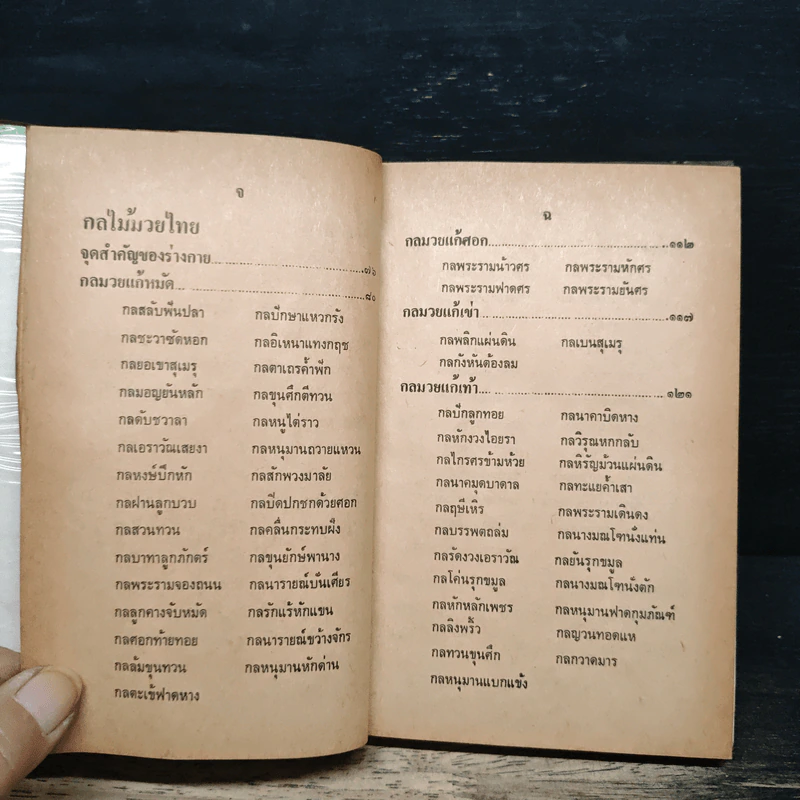 จ
กลไม้มวยไทย
จุดสำคัญของร่างกาย................๗๖
กลมวยแก้หมัด................๘๐
กลสลับฟันปลา กลปักษาแหวกรัง
กลชะวาซัดหอก กลอิเหนาแทงกฤช
กลยอเขาสุเมรุ กลตาเถรค้ำฟัก
กลมอญยันหลัก กลขุนศึกตีทวน
กลดับชวาลา กลหนูไต่ราว
กลเอราวัณเสยงา กลหนุมานถวายแหวน
กลหงษ์ปีกหัก กลสักพวงมาลัย
กลฝานลูกบวบ กลปิดปกชกด้วยศอก
กลสวนทวน กลคลื่นกระทบฝั่ง
กลบาทาลูกภักตร์ กลขุนยักษ์พานาง
กลพระรามจองถนน กลนารายณ์บั่นเศียร
กลลูกคางจับหมัด กลรักแร้หักแขน
กลศอกท้ายทอย กลนารายณ์ขว้างจักร
กลล้มขุนทวน กลหนุมานหักด่าน
กลตะเข้ฟาดหาง
ฉ
กลมวยแก้ศอก................๑๑๒
กลพระรามน้าวศร กลพระรามหักศร
กลพระรามฟาดศร กลพระรามยันศร
กลมวยแก้เข่า................๑๑๗
กลพลิกแผ่นดิน กลเบนสุเมรุ
กลกังหันต้องลม
กลมวยแก้เท้า................๑๒๑
กลปักลูกทอย กลนาคาบิดหาง
กลหักงวงไอยรา กลวิรุณหกกลับ
กลไกรศรข้ามห้วย กลหิรัญม้วนแผ่นดิน
กลนาคมุดบาดาล กลทะแยค้ำเสา
กลฤษีเหิร กลพระรามเดินดง
กลบรรพตถล่ม กลนางมณโฑนั่งแท่น
กลรัดงวงเอราวัณ กลยันรุกขมูล
กลโค่นรุกขมูล กลนางมณโฑนั่งตัก
กลหักหลักเพชร กลหนุมานฟาดกุมภัณฑ์
กลลิงพริ้ว กลญวนทอดแห
กลทวนขุนศึก กลกวาดมาร
กลหนุมานแบกแข้ง